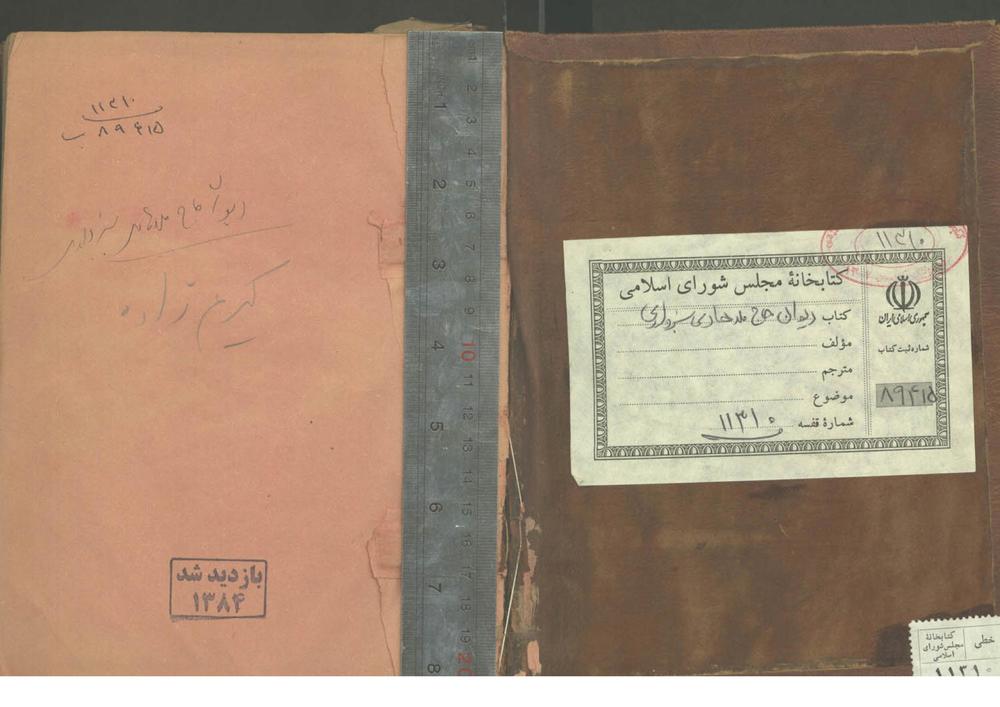 ۱۱۳۱۰
۸۹۴۱۵
دیوان حاج ملاهادی سبزواری
کریم زاده
بازدید شد
۱۳۸۴
۱۱۳۱۰
کتابخانهٔ مجلس شورای اسلامی
کتاب دیوان حاج ملا هادی سبزواری
مؤلف
مترجم
موضوع
شمارهٔ قفسه ۱۱۳۱۰
جمهوری اسلامی ایران
شماره ثبت کتاب
۸۹۴۱۵
خطی
کتابخانهٔ
مجلس شورای
اسلامی
۱۱۳۱۰
1 2 3 4 5 6 7 8
1 2 3 4 5 6 7 8 9 10 11 12 13 14 15 16 17 18 19 20